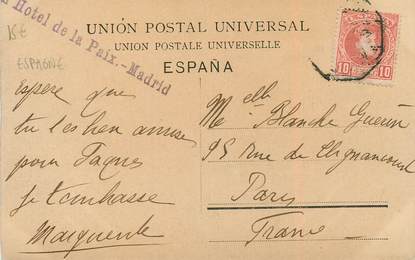 15€
ESPAGNE
Hotel de la Paix.-Madrid
UNIÓN POSTAL UNIVERSAL
UNION POSTALE UNIVERSELLE
ESPAÑA
10 10
Espère que
tu t'es bien amusée
pour Pâques
je t'embrasse
Marguerite
Melle Blanche Guérin
95 rue de Clignancourt
Paris
France